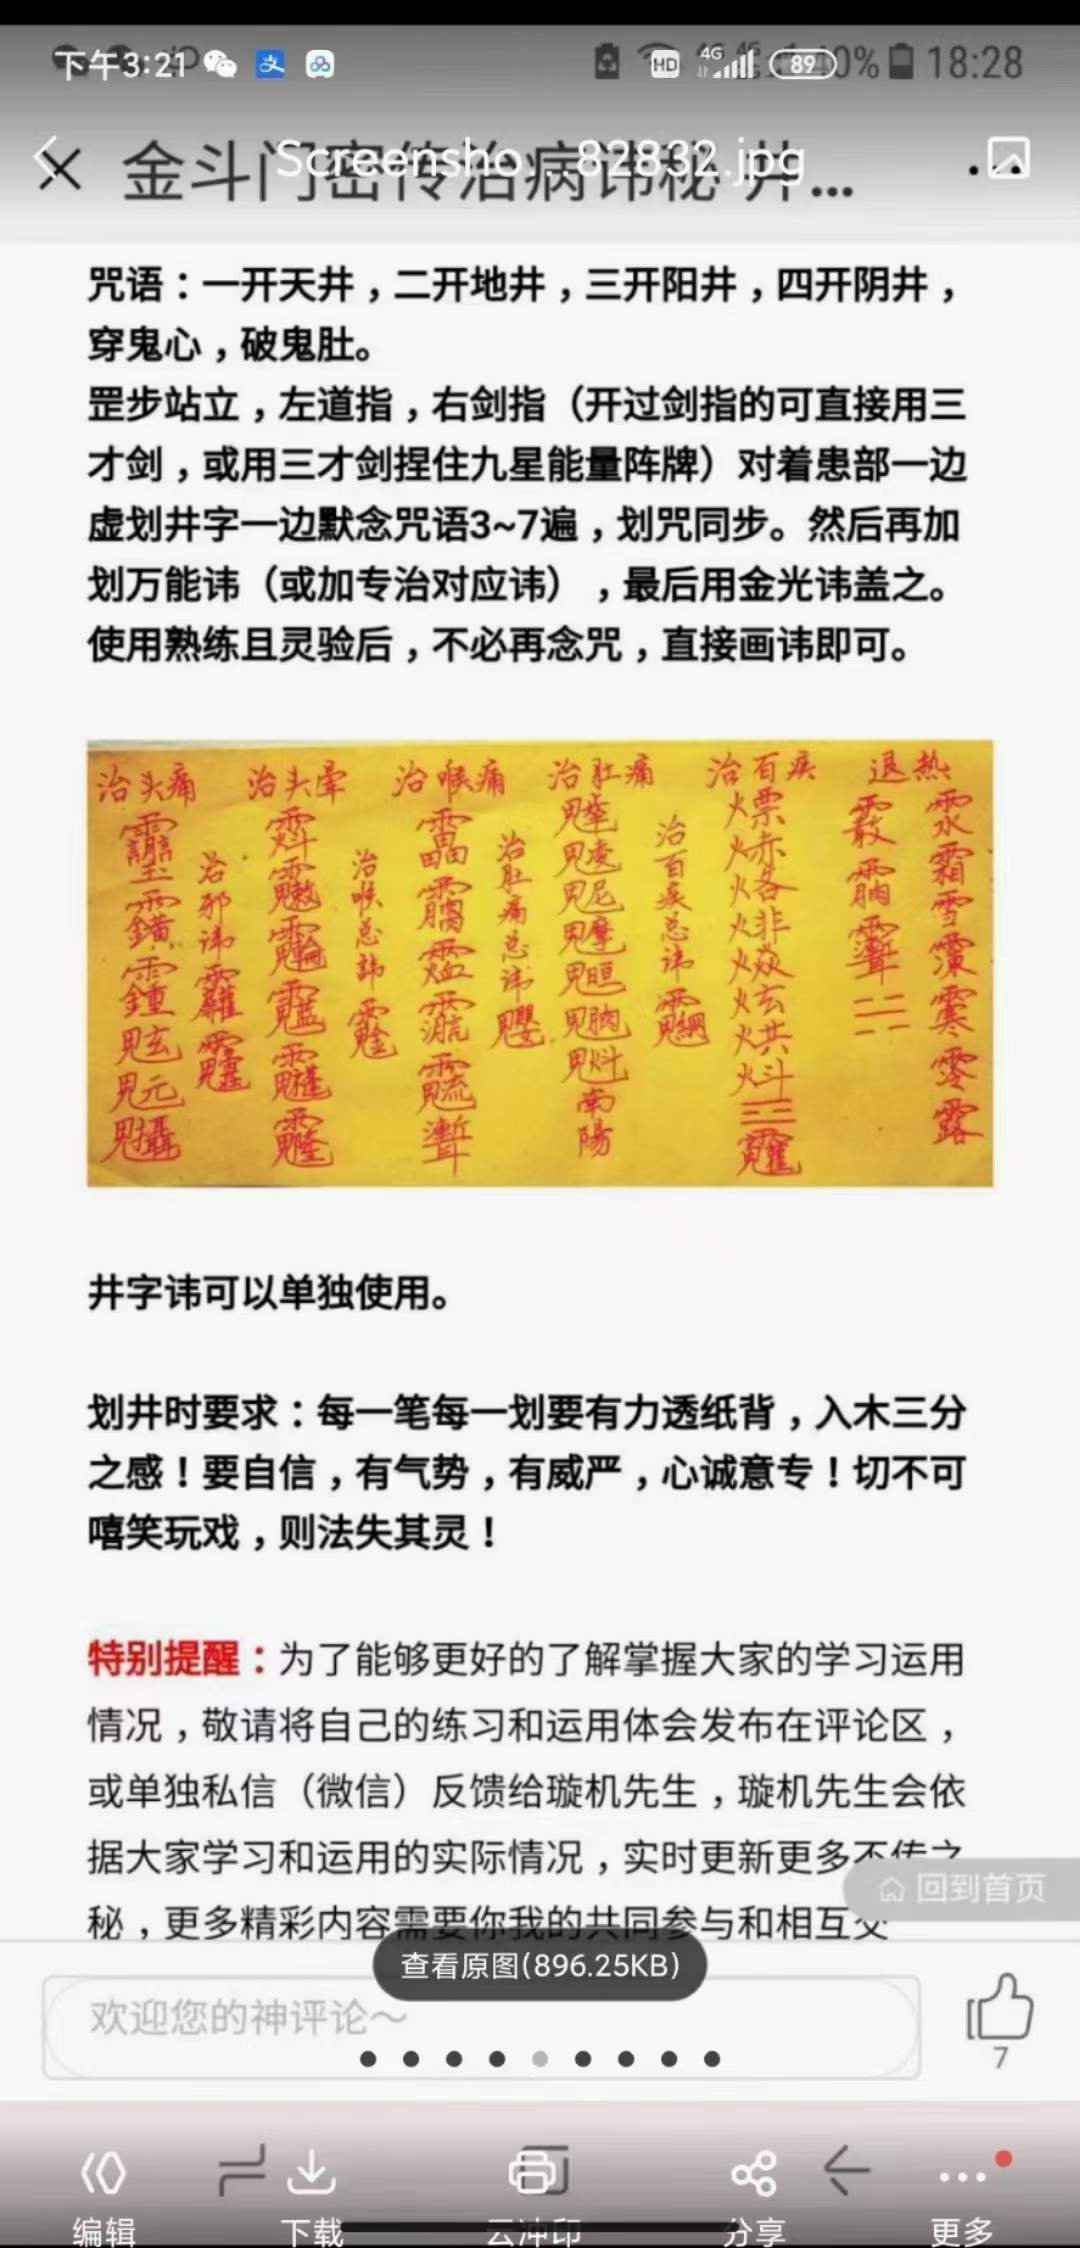 下午3:21
HD 4G 89
40% 18:28
Screensho...82832.jpg
金斗门密传治病讳秘 井...
咒语：一开天井，二开地井，三开阳井，四开阴井，
穿鬼心，破鬼肚。
罡步站立，左道指，右剑指（开过剑指的可直接用三
才剑，或用三才剑捏住九星能量阵牌）对着患部一边
虚划井字一边默念咒语3~7遍，划咒同步。然后再加
划万能讳（或加专治对应讳），最后用金光讳盖之。
使用熟练且灵验后，不必再念咒，直接画讳即可。
治头痛
治邪讳
治头晕
治喉总讳
治喉痛
治肚痛总讳
治肚痛
南陽
治百疾总讳
治百疾
退热
霜雪
寒零露
井字讳可以单独使用。
划井时要求：每一笔每一划要有力透纸背，入木三分
之感！要自信，有气势，有威严，心诚意专！切不可
嘻笑玩戏，则法失其灵！
特别提醒：为了能够更好的了解掌握大家的学习运用
情况，敬请将自己的练习和运用体会发布在评论区，
或单独私信（微信）反馈给璇机先生，璇机先生会依
据大家学习和运用的实际情况，实时更新更多不传之
秘，更多精彩内容需要你我的共同参与和相互交
回到首页
查看原图(896.25KB)
欢迎您的神评论～
7
编辑
下载
云冲印
分享
更多